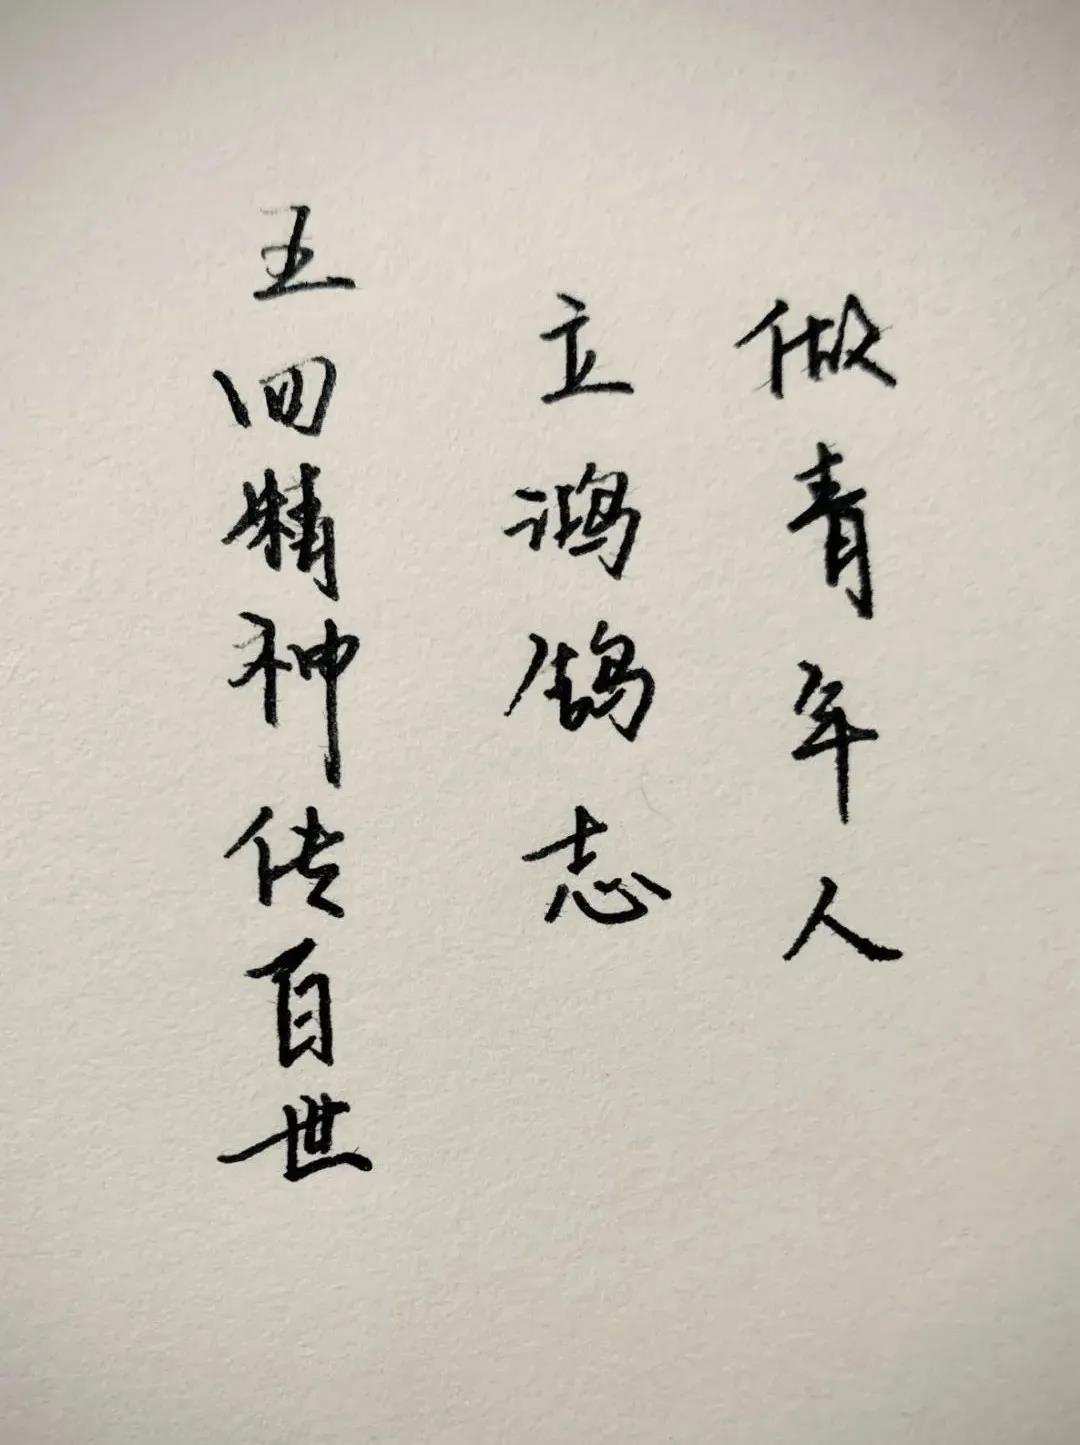 做青年人
立鸿鹄志
五四精神传百世